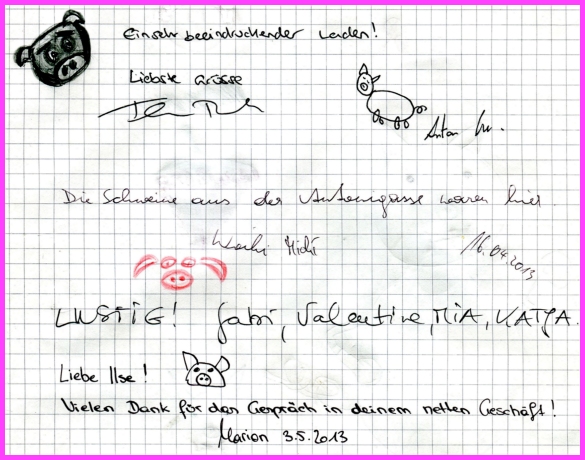 Ein sehr beeindruckender Laden!
Liebste Grüsse
Anton
Die Schweine aus der Antonigasse waren hier.
Michi
16.04.2013
LUSTiG! Gabi, Valentine, MiA, KATJA.
Liebe Ilse!
Vielen Dank für das Gespräch in deinem netten Geschäft!
Marion 3.5.2013